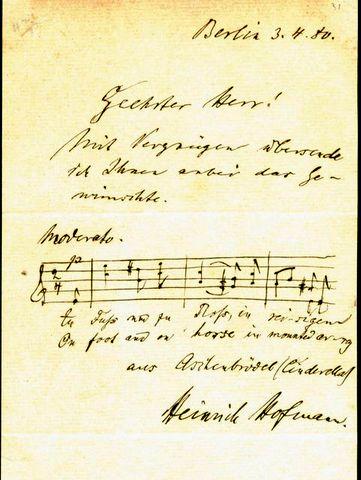 Berlin 3. 4. 80.
Geehrter Herr!
Mit Vergnügen übersende
ich Ihnen anbei das Ge-
wünschte.
Moderato.
p
2
4
Zu Fuss und zu Ross, in rei-sigem
On foot and on horse in mounted
aus Aschenbrödel (Cinderella)
Heinrich Hofmann.